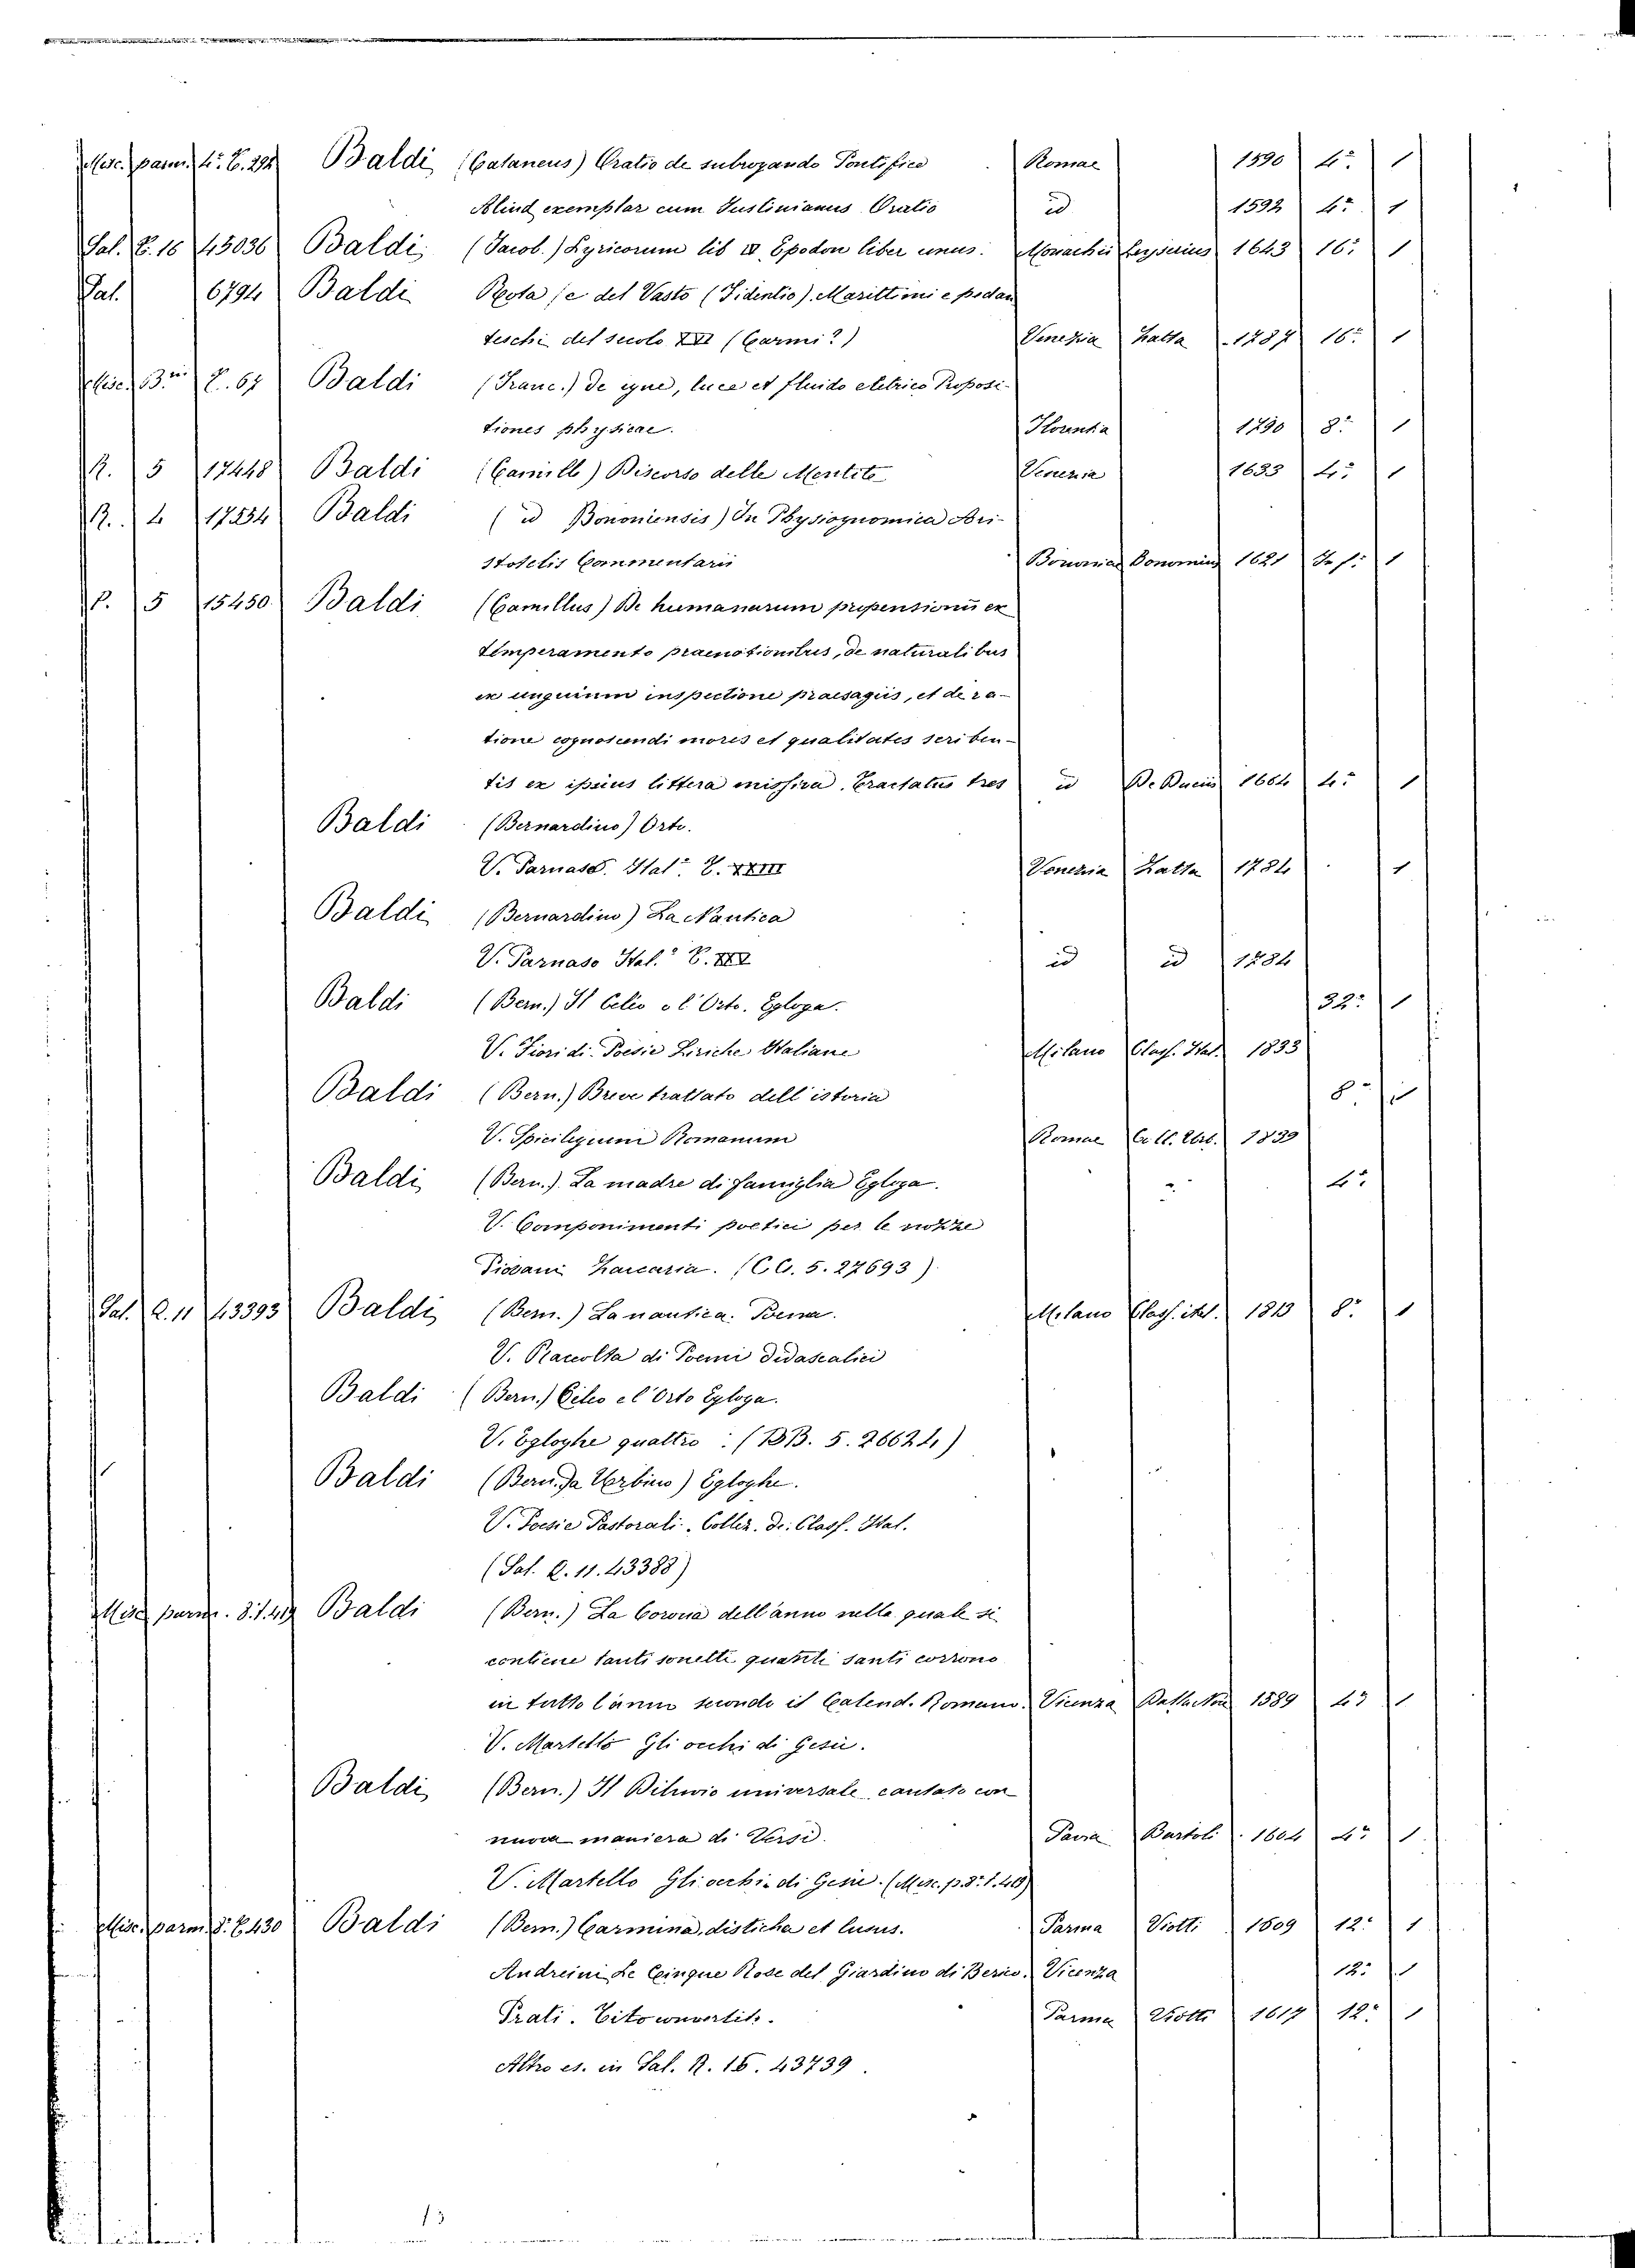 Misc. parm. 4.º T. 292 Baldi (Cataneus) Oratio de subrogando Pontifice Romae 1590 4.º 1
Aliud exemplar cum Justinianus Oratio id 1592 4.º 1
Sal. T. 16 45036 Baldi (Jacob.) Lyricorum lib IV. Epodon liber unus. Monachii Leyserius 1643 16.º 1
Pal. 6794 Baldi Rota (e del Vasto (Fidentio). Marittimi e pedan
teschi del secolo XVI (Carmi?) Venezia Zatta 1787 16.º 1
Misc. B.ni T. 67 Baldi (Franc.) De igne, luce et fluido eletrico Proposi-
tiones physicae. Florentia 1790 8.º 1
R. 5 17448 Baldi (Camillo) Discorso delle Mentite Venezia 1633 4.º 1
R. 2 17234 Baldi (id Bononiensis) In Physiognomica Ari-
stotelis Commentarii Bononiae Bonomius 1621 In f.º 1
P. 5 15450 Baldi (Camillus) De humanarum propensionū ex
temperamento praenotionibus, de naturalibus
ex unguium inspectione praesagiis, et de ra-
tione cognoscendi mores et qualitates scriben-
tis ex ipsius littera missiva. Tractatus tres id De Duciis 1664 4.º 1
Baldi (Bernardino) Orto.
V. Parnaso. Ital.º T. XXIII Venezia Zatta 1784 1
Baldi (Bernardino) La Nautica
V. Parnaso Ital.º T. id id 1784
Baldi (Bern.) Il Celio o l'Orto. Egloga. 32.º 1
V. Fiori di Poesie Liriche Italiane Milano Class. Ital. 1833
Baldi (Bern.) Breve trattato dell'istoria 8.º 1
V. Spicilegium Romanum Romae Coll. Urb. 1839
Baldi (Bern.) La madre di famiglia Egloga. 4.º
V. Componimenti poetici per le nozze
Piovani Zaccaria. (CC. 5. 27693)
Sal. Q. 11 43393 Baldi (Bern.) La nautica. Poema. Milano Class. ital. 1813 8.º 1
V. Raccolta di Poemi Didascalici
Baldi (Bern.) Celeo e l'Orto Egloga.
V. Egloghe quattro. (BB. 5. 26624)
Baldi (Bern. da Urbino) Egloghe.
V. Poesie Pastorali. Collez. de: Class. Ital.
(Sal. Q. 11. 43388)
Misc. parm. 8.º T. 419 Baldi (Bern.) La Corona dell'anno nella quale si
contiene tanti sonetti quanti santi corrono
in tutto l'anno secondo il Calend. Romano. Vicenza 1589 4.º 1
V. Martello Gli occhi di Gesù.
Baldi (Bern.) Il Diluvio universale cantato con
nuova maniera di Versi. Pavia Bartoli 1604 4.º 1
V. Martello Gli occhi di Gesù. (Misc. p. 8.º T. 419)
Misc. parm. 8.º T. 430 Baldi (Bern.) Carmina, disticha et lusus. Parma Viotti 1609 12.º 1
Andreini Le Cinque Rose del Giardino di Berico. Vicenza 12.º 1
Prati. Tito convertito. Parma Viotti 1617 12.º 1
Altro es. in Sal. R. 15. 43739.
13